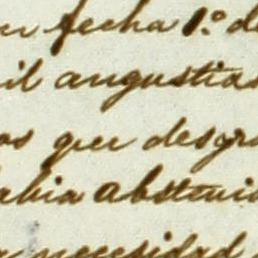 en fecha 1.º de
mil angustias
os que desgra
abia abstenid
necesidad